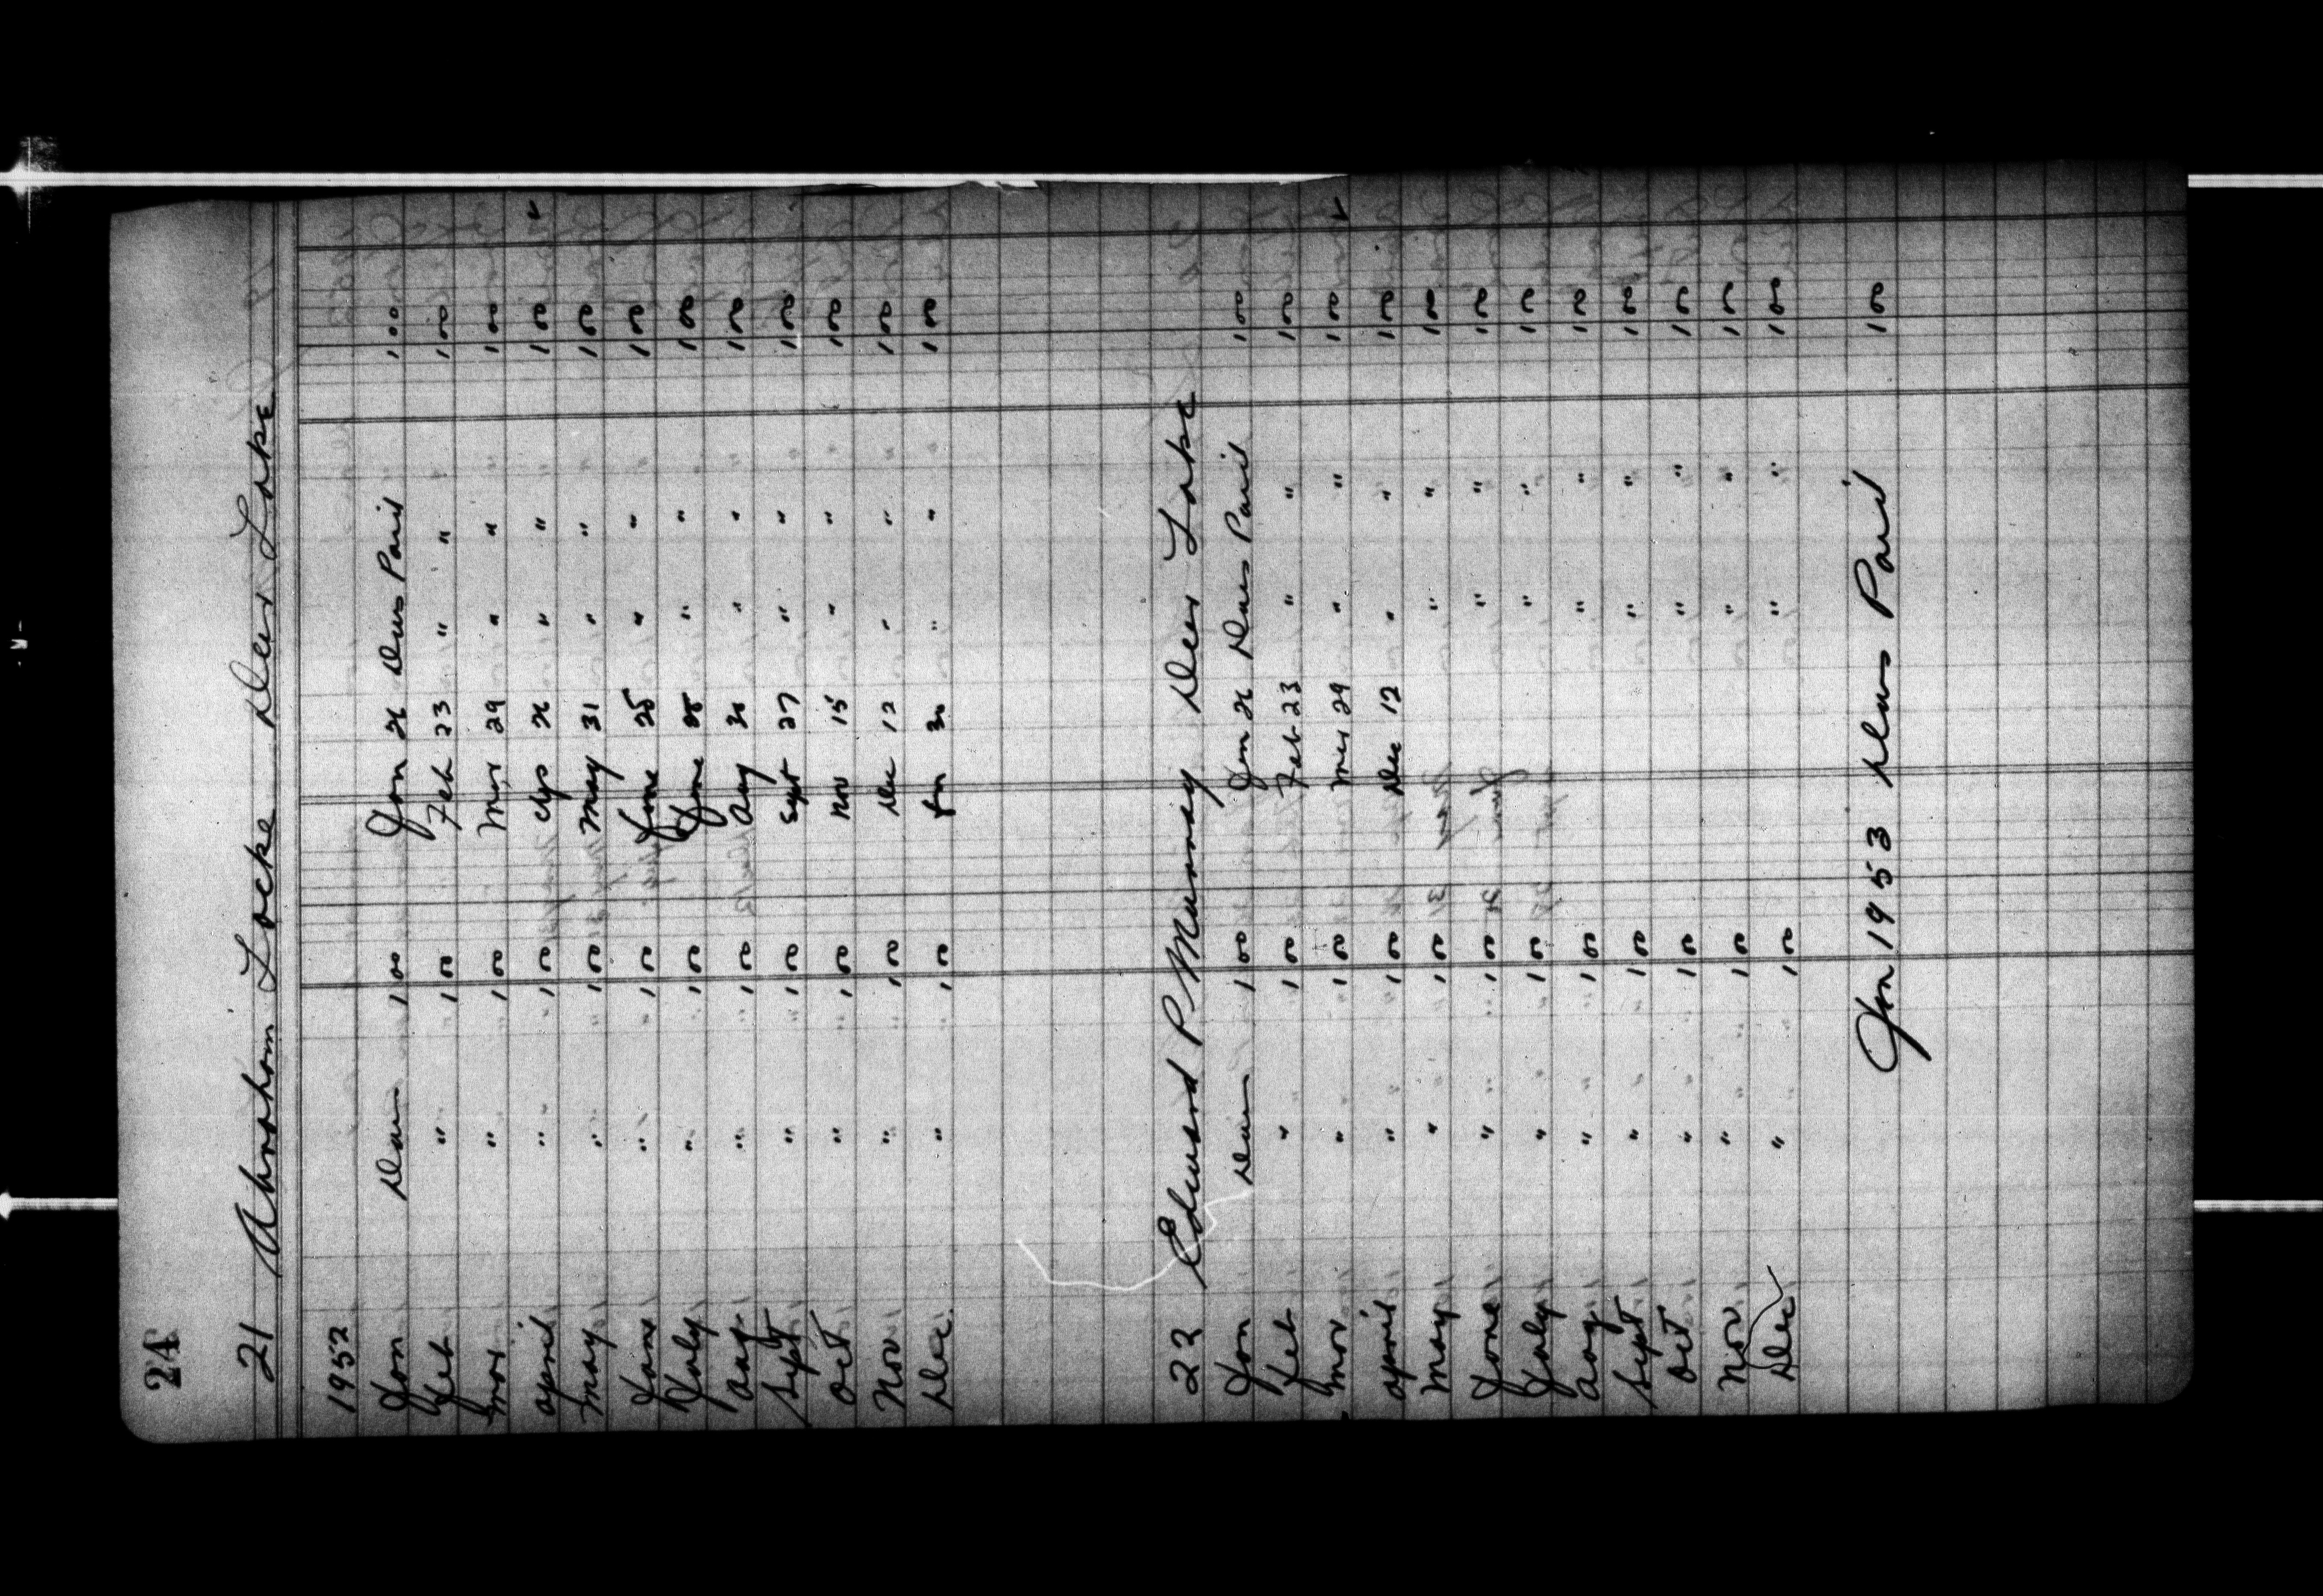 24
21 Abraham Locke Deer Lake
1952
Jan Dues 1 00 Jan 26 Dues Paid 1 00
Feb " 1 00 Feb 23 " " 1 00
Mar " 1 00 Mar 29 " " 1 00
April " 1 00 Ap 26 " " 1 00
May " 1 00 May 31 " " 1 00
June " 1 00 June 25 " " 1 00
July " 1 00 June 25 " " 1 00
Aug " 1 00 Aug 30 " " 1 00
Sept " 1 00 Sept 27 " " 1 00
Oct " 1 00 Nov 15 " " 1 00
Nov " 1 00 Dec 12 " " 1 00
Dec. " 1 00 Jan 30 " " 1 00
22 Edward P Murray Deer Lake
Jan Dues 1 00 Jan 26 Dues Paid 1 00
Feb " 1 00 Feb 23 " " 1 00
Mar " 1 00 Mar 29 " " 1 00
April " 1 00 Dec 12 " " 1 00
May " 1 00 " " 1 00
June " 1 00 " " 1 00
July " 1 00 " " 1 00
Aug " 1 00 " " 1 00
Sept " 1 00 " " 1 00
Oct " 1 00 " " 1 00
Nov " 1 00 " " 1 00
Dec " 1 00 " " 1 00
Jan 1953 Dues Paid 1 00